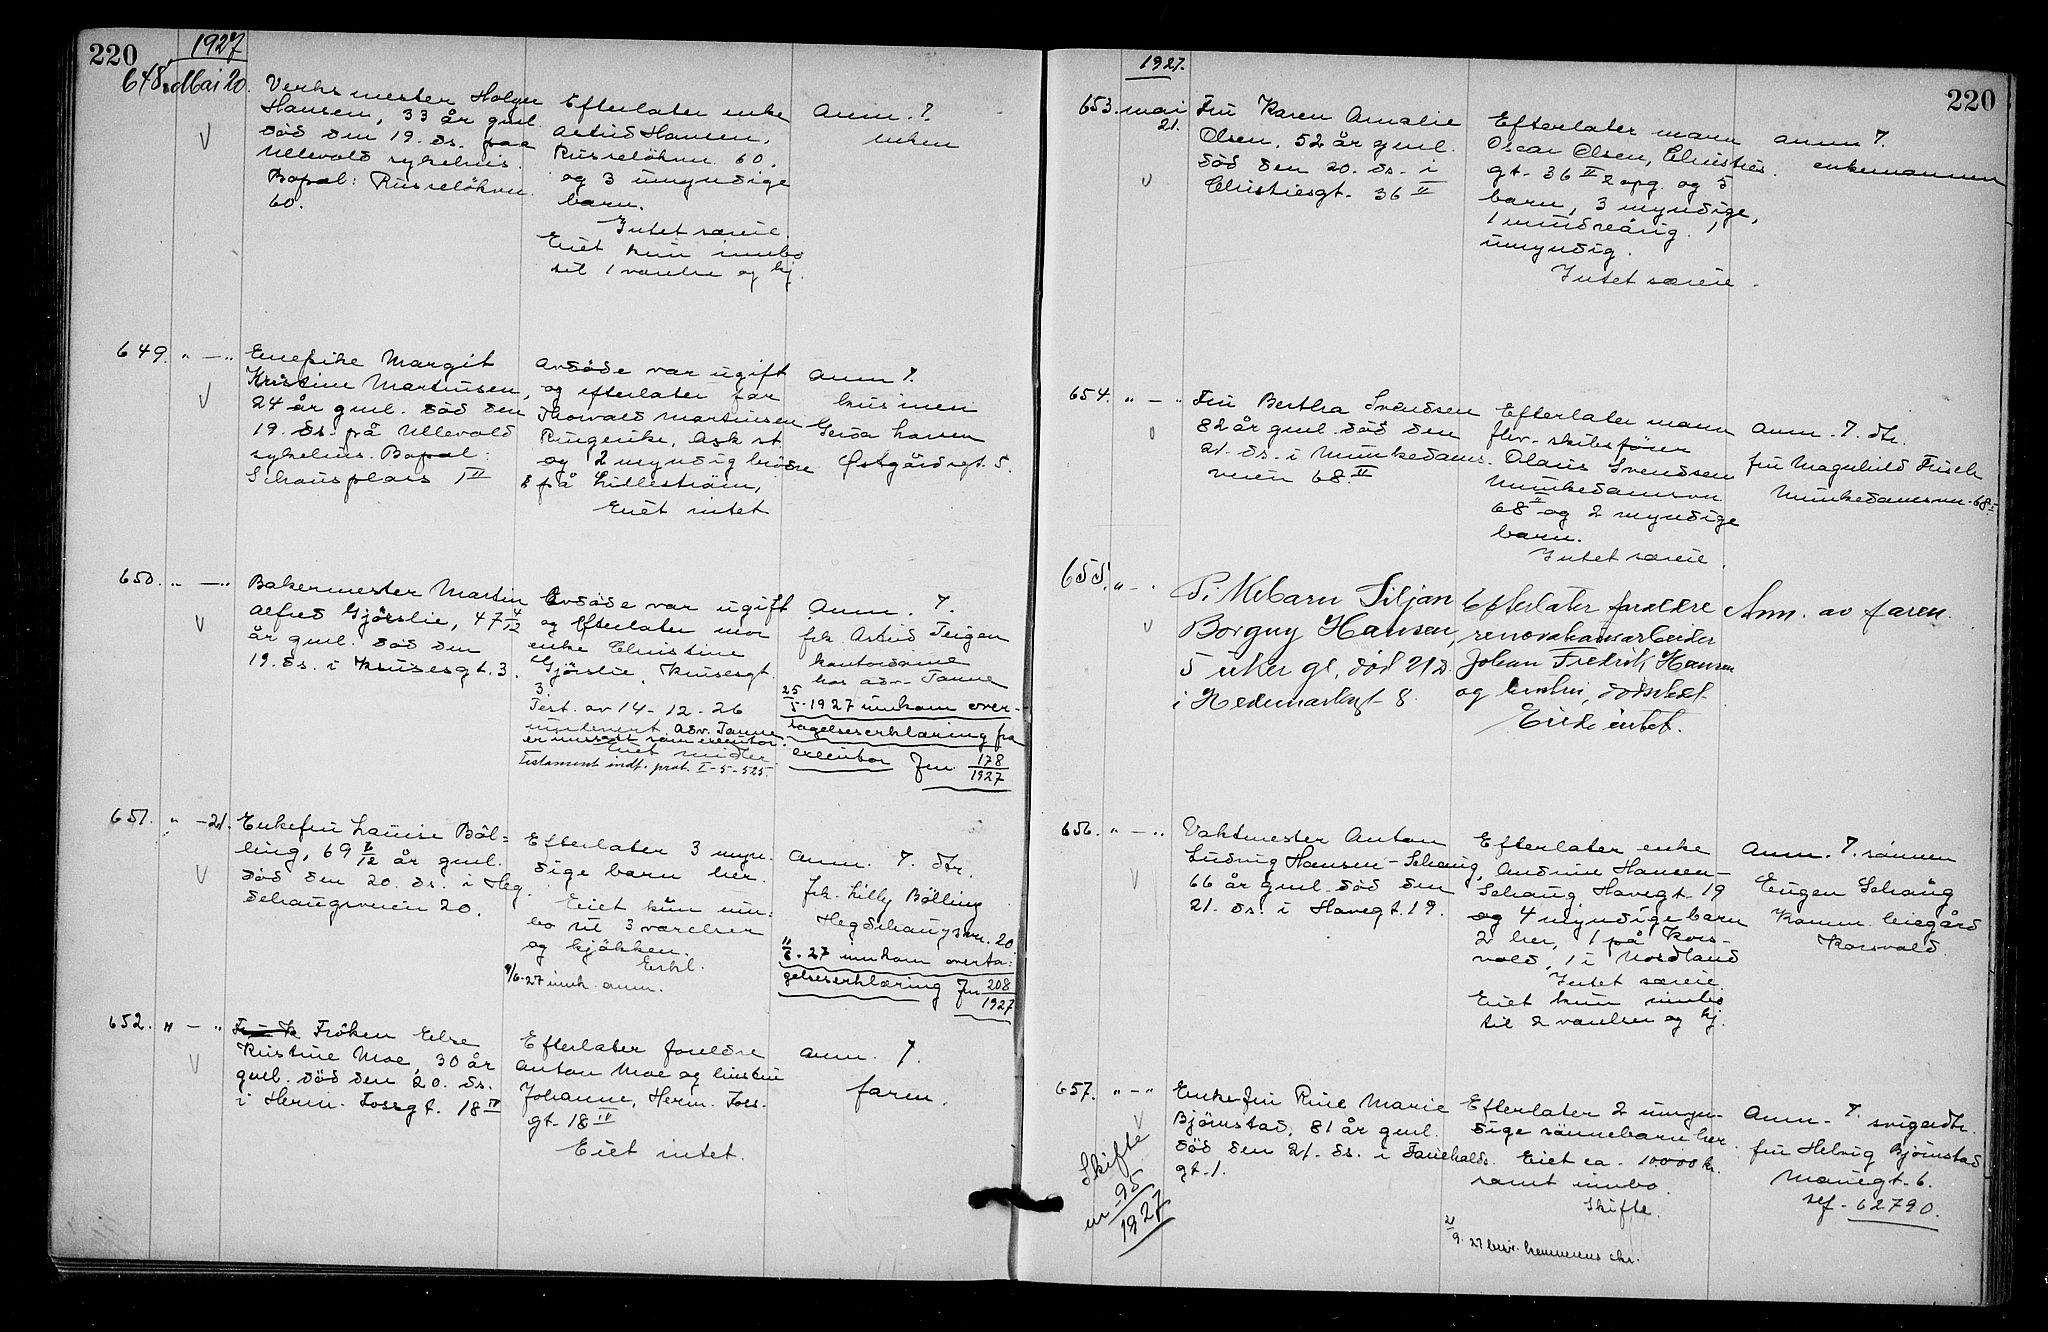 220
1927
648. Mai 20.
Verksmester Holger
Hansen, 33 år gml.
död den 19. ds. paa
Ullevold sykehus.
Bopæl: Russelökvn.
60.
Efterlater enke
Astrid Hansen,
Russelökvn. 60.
og 3 umyndige
barn.
Intet særeie.
Eiet kun innbo
til 1 værelse og kj.
Anm. 7.
enken
649. " — "
Enepike Margit
Kristine Martinsen,
24 år gml. död den
19. ds. på Ullevold
sykehus. Bopæl:
Schousplass 1 II
Avdöde var ugift
og efterlater far
Thorvald Martinsen
Ringerike, Ask st.
og 2 myndig brödre
på Lilleström,
Eiet intet
Anm 7.
kusinen
Gerda Larsen
Østgårdsgt. 5.
650. " — "
Bakermester Martin
Alfred Gjörslie, 47 4/12
år gml. död den
19. ds. i Krusesgt. 3.
Avdöde var ugift
og efterlater mor
enke Christine
Gjörslie, Krusesgt.
3.
Test. av 14-12-26
innlevert. Adv. Tanne
er opnevnt som executor.
Eiet midler
Testament indt. prot. I-5-525.
Anm. 7.
frk. Astrid Teigen
kontordame
hos adv. Tanne
25/5-1927 innkom over-
tagelseserklæring fra
executor Jnr. 178/1927
651. " — 21.
Enkefru Lauise Böl=
ling, 69 6/12 år gml.
död den 20. ds. i Heg
dehaugsveien 20.
Efterlater 3 myn-
dige barn her.
Eiet kun inn-
bo til 3 værelser
og kjökken.
Erkl.
9/6-27 innk. anm.
Anm. 7. dtr.
frk. Lilly Bölling
Hegdehaugsvn. 20
11/6. 27 innkom overta-
gelseserklæring Jnr. 208/1927
652. " — "
Fröken Else
Kristine Moe, 30 år
gml. död den 20. ds.
i Herm. Fossgt. 18 IV
Efterlater foreldre
Anton Moe og hustru
Johanne, Herm. Foss-
gt. 18 IV
Eiet intet.
Anm. 7.
faren.
1927.
220
653. mai
21.
Fru Karen Amalie
Olsen, 52 år gml.
död den 20. ds. i
Christiesgt. 36 II
Efterlater mann
Oscar Olsen, Christies.
gt. 36 II 2 opg. og 5
barn, 3 myndige,
1 mindreårig, 1
umyndig.
Intet særeie.
Anm 7.
enkemannen
654. " — "
Fru Bertha Svendsen
82 år gml. död den
21. ds. i Munkedams-
veien 68. II
Efterlater mann
fhv. skibsförer
Olaus Svendsen
Munkedamsvn.
68 II og 2 myndige
barn.
Intet særeie.
Anm. 7. dtr.
fru Magnhild Frisch
Munkedamsvn. 68. II
655. " — "
Pikebarn Siljan
Borguy Hansen,
5 uker gl, död 21 ds.
i Hedemarksgt 8
Efterlater foreldre
renovationsarbeider
Johan Fredrik Hansen
og hustru, dödsstedet
Eiede intet.
Anm. av faren.
656. " — "
Vaktmester Anton
Ludvig Hansen-Schaug,
66 år gml. död den
21. ds. i Havegt. 19.
Efterlater enke
Andrine Hansen-
Schaug, Havegt. 19
og 4 myndige barn
2 her, 1 på Kors-
vold, 1 i Nordland
Intet særeie.
Eiet kun innbo
til 2 værelser og kj.
Anm. 7. sönnen
Eugen Schaug
Komm. leiegård
Korsvold.
657. " — "
Enkefru Rine Marie
Björnstad, 81 år gml.
död den 21. ds. i Tanehalds.
gt. 1.
Skifte
nr 95/1927
Efterlater 2 umyn-
dige sönnebarn her.
Eiet ca. 10.000 kr.
samt innbo.
Skifte.
21/9. 27
Anm. 7. svigerdtr.
fru Helvig Björnstad
Mariegt. 6.
tlf. 62790.